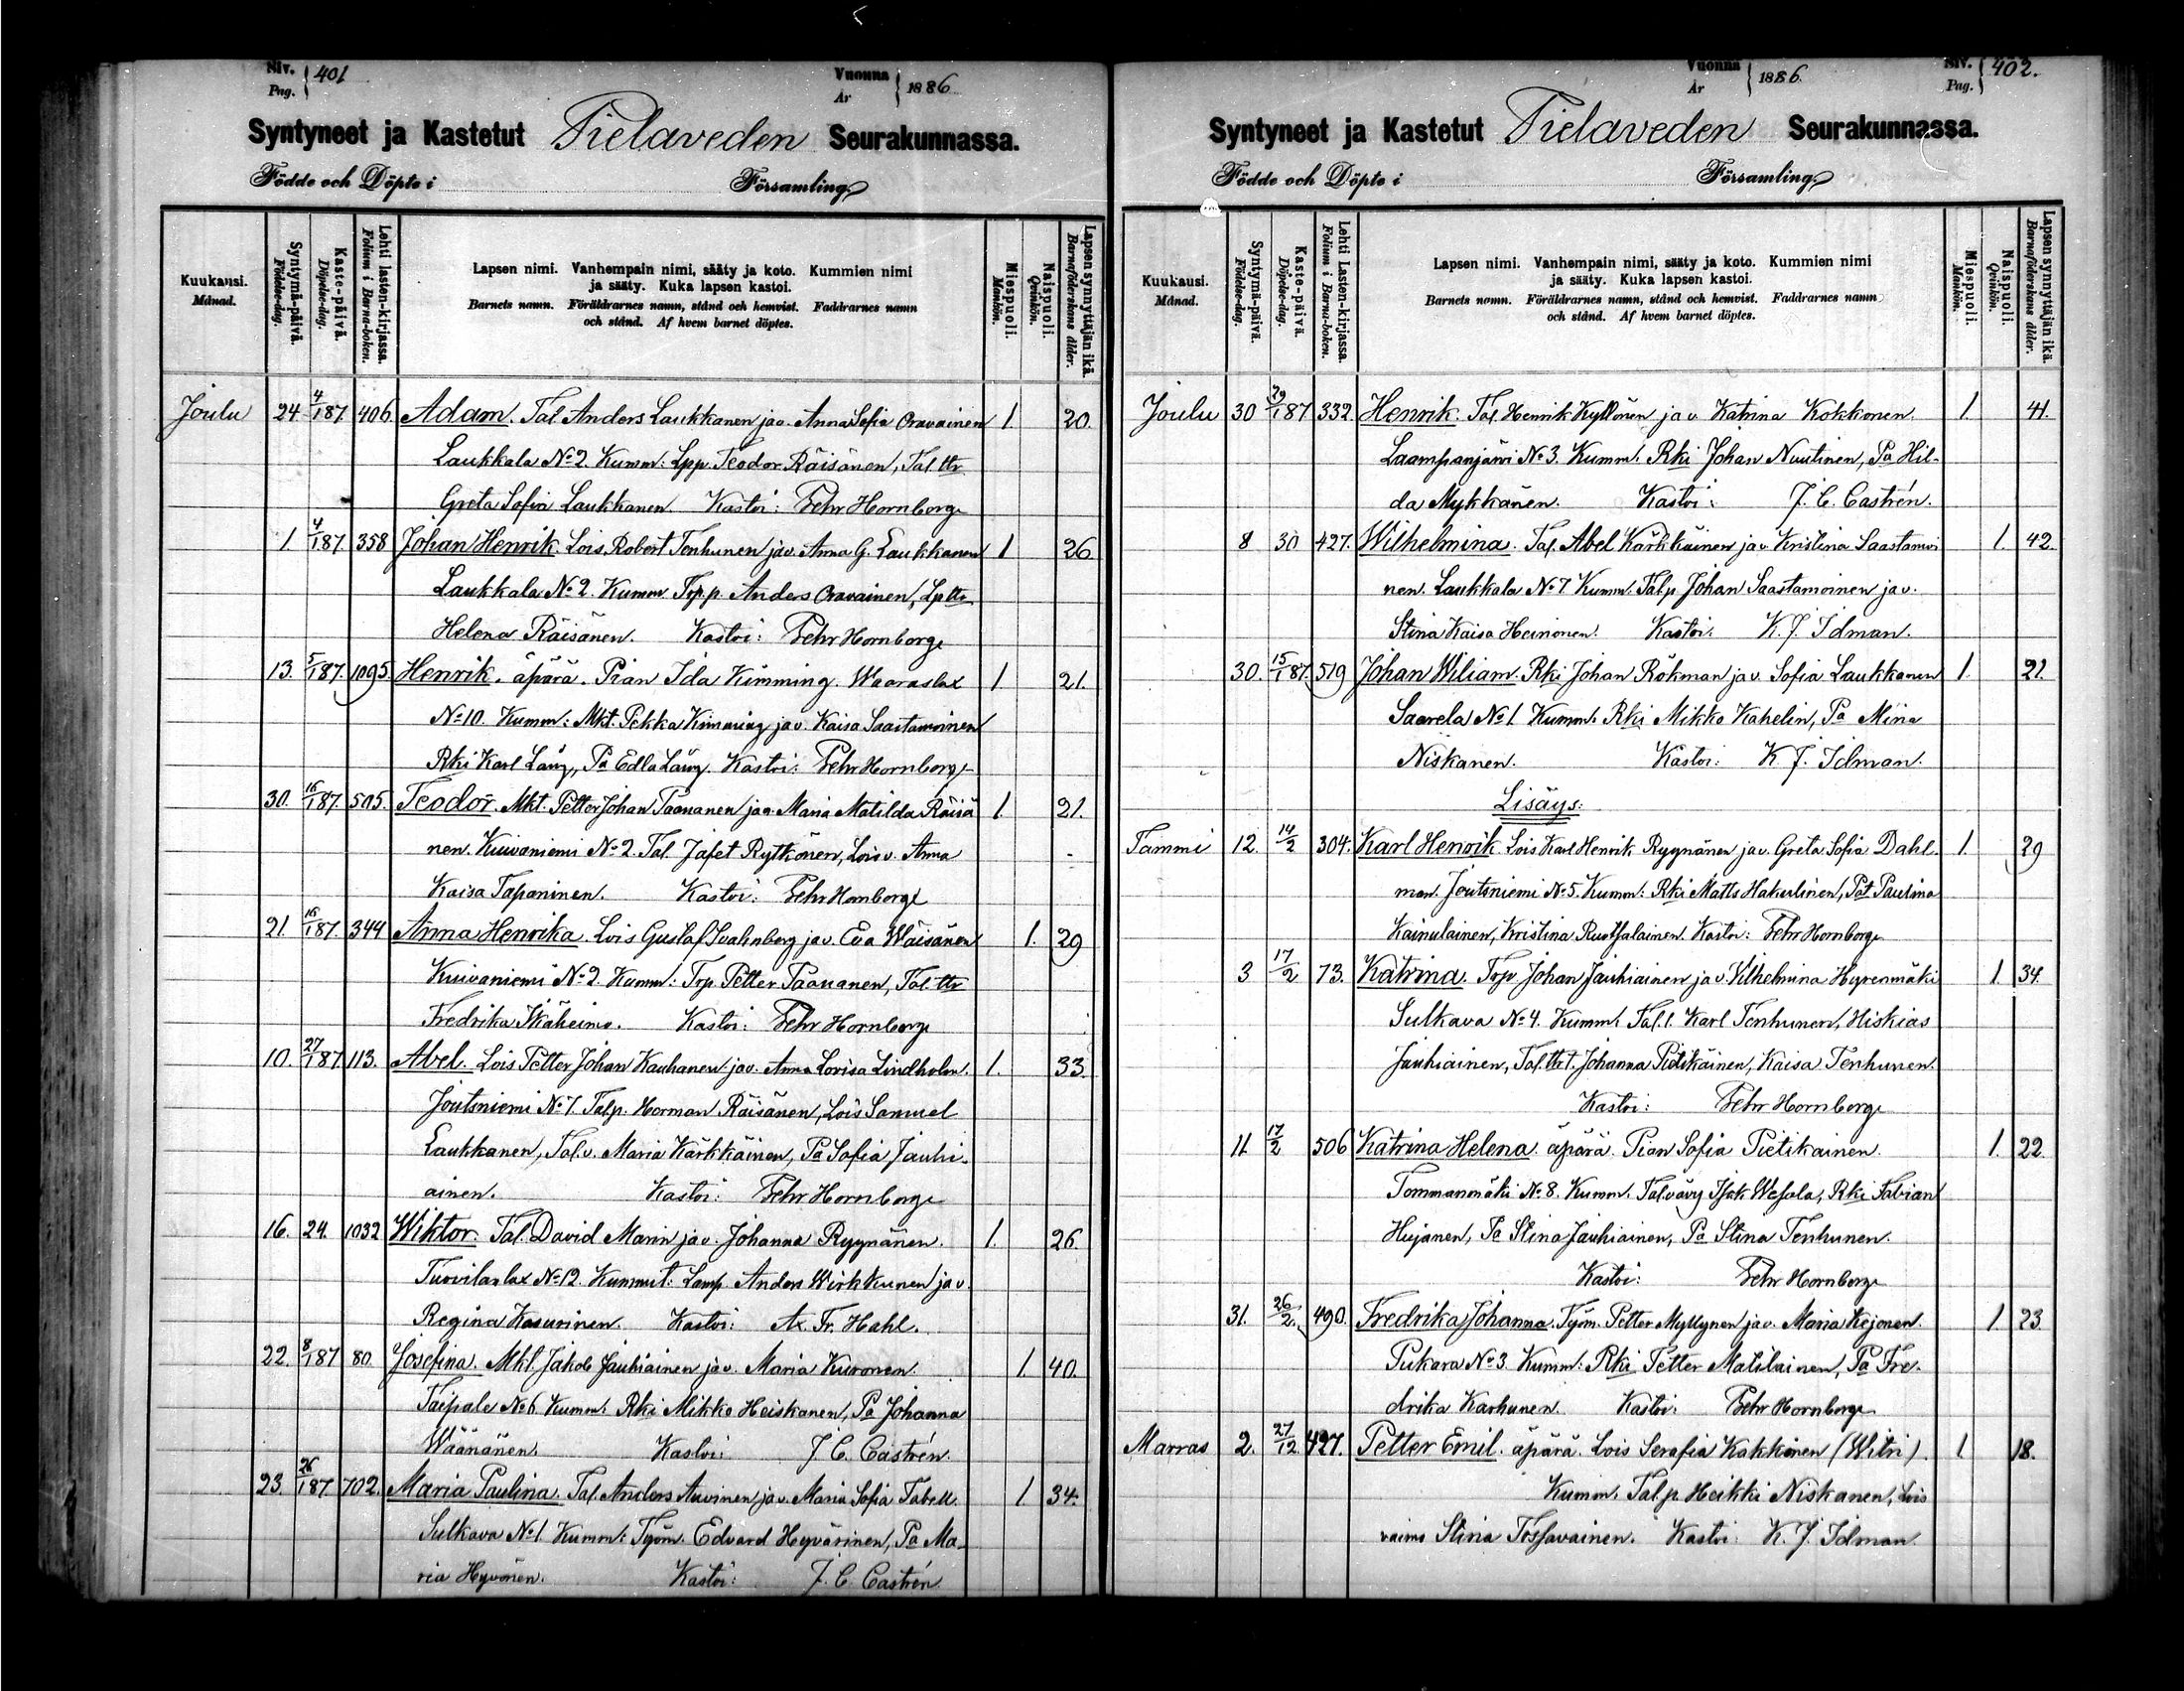 Siv. Pag. 401
Vuonna År 1886
Syntyneet ja Kastetut Pielaveden Seurakunnassa.
Födde och Döpte i Församling
Kuukausi. Månad.
Syntymä-päivä. Födelse-dag.
Kaste-päivä. Döpelse-dag.
Lehti lasten-kirjassa. Folium i Barna-boken.
Lapsen nimi. Vanhempain nimi, sääty ja koto. Kummien nimi
ja sääty. Kuka lapsen kastoi.
Barnets namn. Föräldrarnes namn, stånd och hemvist. Faddrarnes namn
och stånd. Af hvem barnet döptes.
Miespuoli. Mankön.
Naispuoli. Qvinkön.
Lapsen synnyttäjän ikä. Barnaföderskans ålder.
Joulu 24 4/1 87 406 Adam. Tal. Anders Laukkanen ja v. Anna Sofia Oravainen 1. 20.
Laukkala No 2. Kumm: Lpp. Teodor Räisänen, Tal. ttr
Greta Sofia Laukkanen. Kastoi: Fehr Hornborg
1. 4/1 87 358 Johan Henrik. Lois. Robert Tenhunen ja v. Anna G. Laukkanen 1 26
Laukkala No 2. Kumm. Trp.p. Anders Oravainen, Lp ttr
Helena Räisänen. Kastoi: Fehr Hornborg
13. 5/1 87. 1095. Henrik. äpärä. Pian Ida Kimming. Waaraslax 1 21.
No 10. Kumm: Mkt. Pekka Kimming ja v. Kaisa Saastamoinen
Rki Karl Lång, Pa Edla Lång. Kastoi: Fehr Hornborg
30. 16/1 87. 505. Teodor. Mkt. Petter Johan Paananen ja v. Maria Matilda Räisä 1. 21.
nen. Kuivaniemi No 2. Tal. Jafet Rytkönen, Lois v. Anna
Kaisa Tapaninen. Kastoi: Fehr Hornborg
21. 16/1 87. 344 Anna Henrika. Lois Gustaf Svahnberg ja v. Eva Wäisänen 1. 29
Kuivaniemi No 2. Kumm: Trp. Petter Paananen, Tal. ttr
Fredrika Ikäheimo. Kastoi: Fehr Hornborg
10. 27/1 87. 113. Abel. Lois Petter Johan Kauhanen ja v. Anna Lovisa Lindholm. 1. 33.
Joutsniemi No 7. Tal.p. Herman Räisänen, Lois Samuel
Laukkanen, Tal. v. Maria Kärkkäinen, Pa Sofia Jauhi-
ainen. Kastoi: Fehr Hornborg
16. 24. 1032 Wiktor. Tal. David Marin ja v. Johanna Ryynänen. 1. 26.
Tuovilanlax No 12. Kummit: Lamp. Anders Wirkkunen ja v.
Regina Kasurinen. Kastoi: Ax. Fr. Hahl.
22. 8/1 87 80. Josefina. Mkl. Jakob Jauhiainen ja v. Maria Kuronen. 1. 40.
Taipale No 6. Kumm: Rki Mikko Heiskanen, Pa Johanna
Wäänänen. Kastoi: J. C. Castrén.
23. 26/1 87. 702. Maria Paulina. Tal. Anders Auvinen ja v. Maria Sofia Tabell. 1 34.
Sulkava No 1. Kumm: Työm. Edvard Hyvärinen, Pa Ma-
ria Hyvönen. Kastoi: J. C. Castrén
Siv. Pag. 402.
Vuonna År 1886.
Syntyneet ja Kastetut Pielaveden Seurakunnassa.
Födde och Döpte i Församling
Kuukausi. Månad.
Syntymä-päivä. Födelse-dag.
Kaste-päivä. Döpelse-dag.
Lehti Lasten-kirjassa. Folium i Barna-boken.
Lapsen nimi. Vanhempain nimi, sääty ja koto. Kummien nimi
ja sääty. Kuka lapsen kastoi.
Barnets namn. Föräldrarnes namn, stånd och hemvist. Faddrarnes namn
och stånd. Af hvem barnet döptes.
Miespuoli. Mankön.
Naispuoli. Qvinkön.
Lapsen synnyttäjän ikä. Barnaföderskans ålder.
Joulu 30 29/1 87 332. Henrik. Tal. Henrik Kyllönen ja v. Katrina Kokkonen. 1. 41.
Laampanjärvi No 3. Kumm. Rki Johan Nuutinen, Pa Hil-
da Mykkänen. Kastoi: J. C. Castrén.
8 30 427. Wilhelmina. Tal. Abel Kärkkäinen ja v. Kristina Saastamoi 1. 42.
nen. Laukkala No 7 Kumm. Tal.p. Johan Saastamoinen ja v.
Stina Kaisa Heinonen. Kastoi. K. J. Idman.
30. 15/1 87. 519 Johan Wiliam. Rki Johan Rökman ja v. Sofia Laukkanen 1. 21.
Saarela No 1. Kumm. Rki Mikko Kahelin, Pa Mina
Niskanen. Kastoi: K. J. Idman.
Lisäys:
Tammi 12. 14/2 304. Karl Henrik. Lois Karl Henrik Ryynänen ja v. Greta Sofia Dahl- 1. 29
man. Joutsniemi No 5. Kumm: Rki Matts Hakulinen, Pat Paulina
Kainulainen, Kristina Ruotsalainen. Kastoi: Fehr Hornborg
3 17/2 73. Katrina. Trp. Johan Jauhiainen ja v. Vilhelmina Hyrenmäki 1. 34.
Sulkava No 4. Kumm. Tal. l. Karl Tenhunen, Hiskias
Jauhiainen, Tal. ttr t. Johanna Pietikäinen, Kaisa Tenhunen.
Kastoi: Fehr Hornborg
11 17/2 506 Katrina Helena. äpärä. Pian Sofia Pietikainen. 1. 22.
Tommanmäki No 8. Kumm. Tal. vävy Isak Wesala, Rki Fabian
Hujanen, Pa Stina Jauhiainen, Pa Stina Tenhunen.
Kastoi: Fehr Hornborg
31. 26/2. 490. Fredrika Johanna. Työm. Petter Myllynen ja v. Maria Kejonen. 1 23.
Pukara No 3. Kumm: Rki Petter Matilainen, Pa Fre-
drika Karhunen. Kastoi. Fehr Hornborg
Marras 2. 27/12 427. Petter Emil. äpärä. Lois Serafia Kokkonen (Witri). 1. 18.
Kumm. Tal.p. Heikki Niskanen, Lois
vaimo Stina Tossavainen. Kastoi. K. J. Idman.